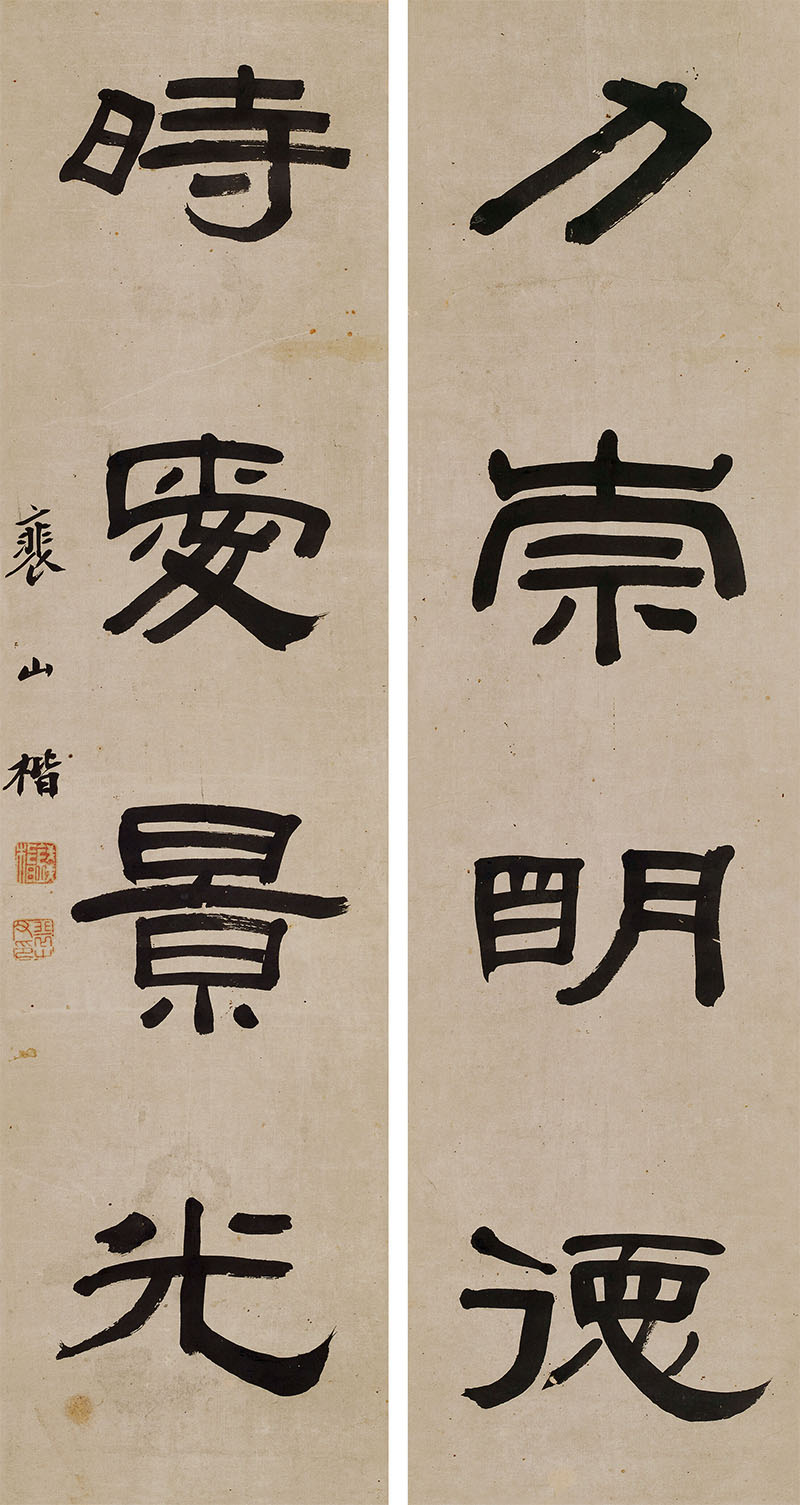 力崇明德
時愛景光
裴山楷